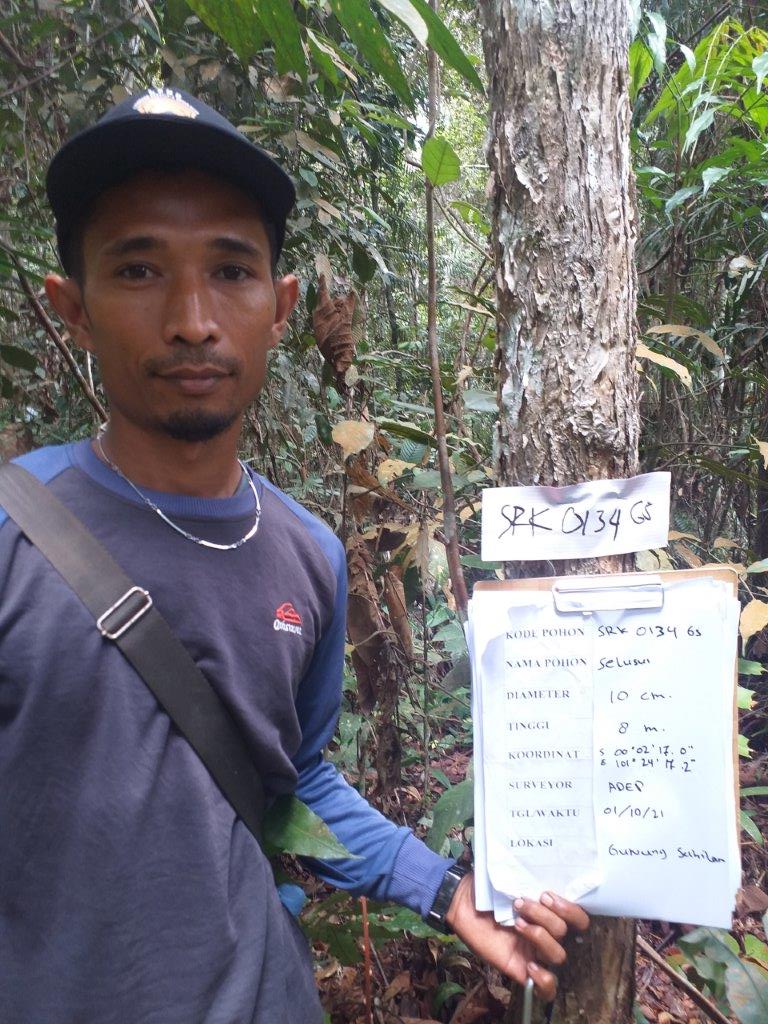 SRK 0134 GS
KODE POHON SRK 0134 GS
NAMA POHON Selusur
DIAMETER 10 cm.
TINGGI 8 m.
KOORDINAT S 00°02'17.0"
E 101°24'17.2"
SURVEYOR ADEP
TGL/WAKTU 01/10/21
LOKASI Gunung Sahilan